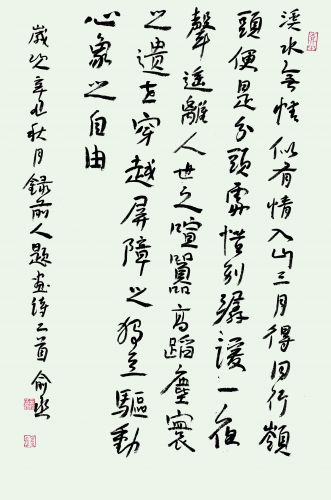 溪水無情似有情入山三月得同行嶺
頭便是分頭處惜別潺湲一夜
聲遥離人世之喧囂高蹈塵寰
之遺世穿越屏障之獨立驅動
心象之自由
歲次辛丑秋月錄前人題畫詩二首